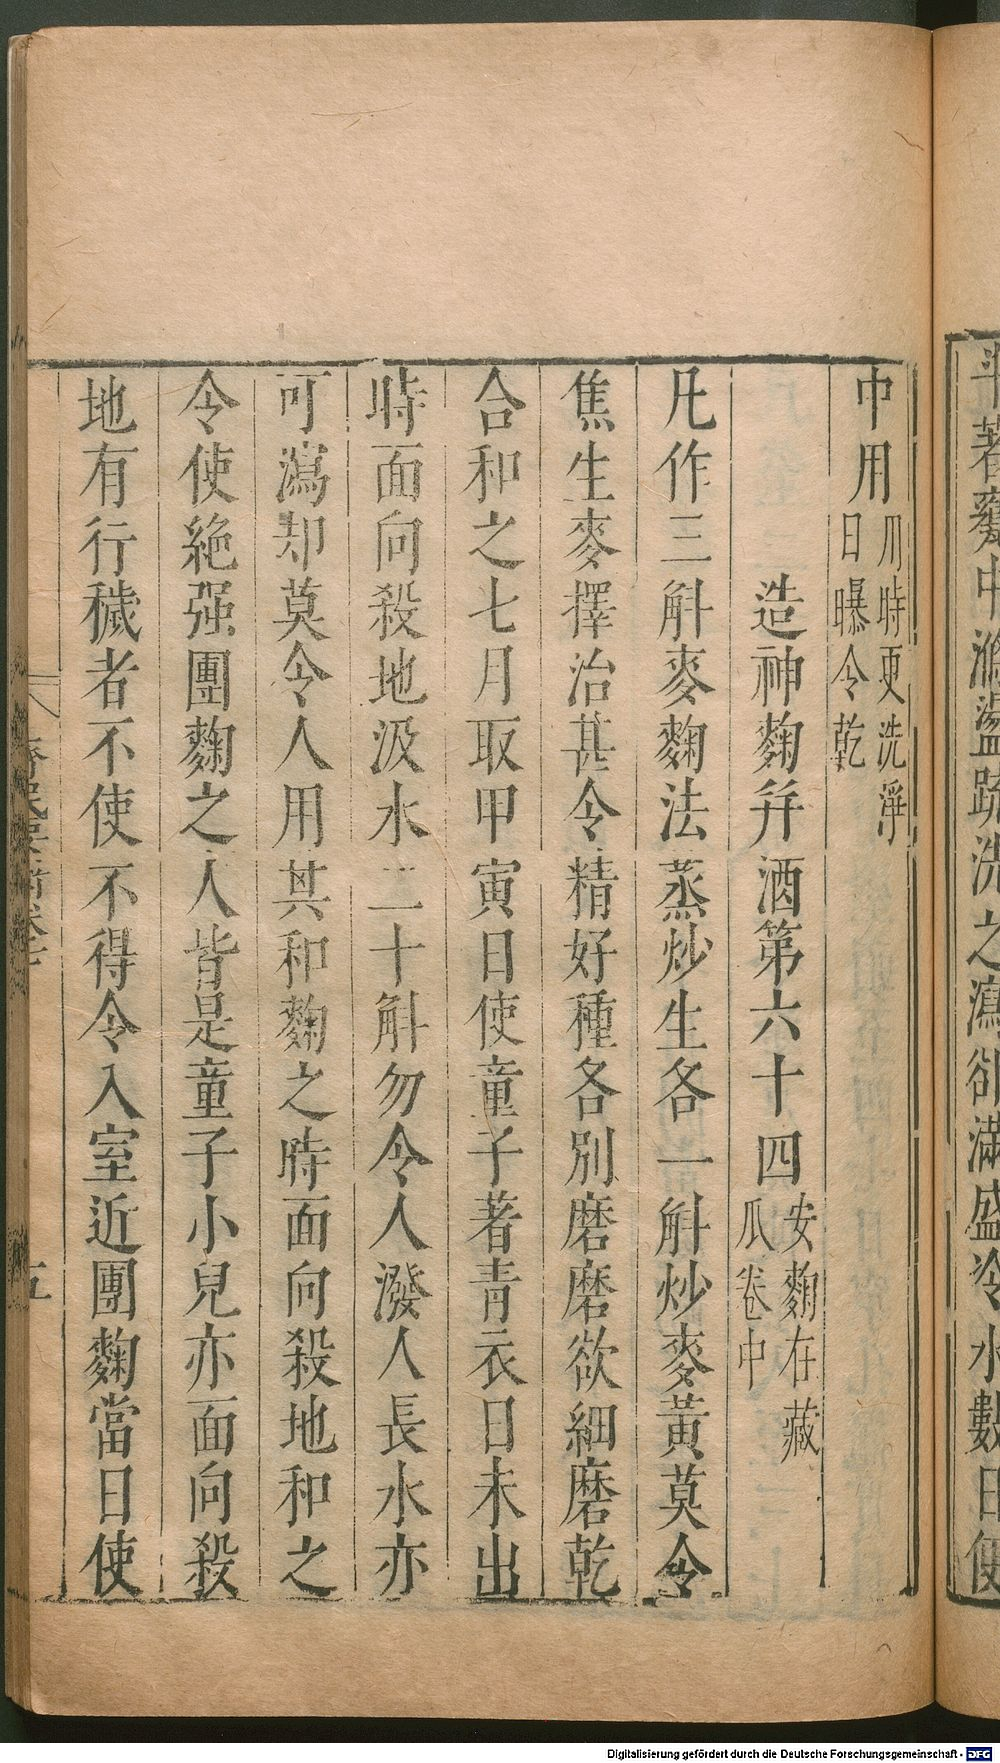 半著甕中滌盪疏洗之瀉卻滿盛冷水數日便
中用用時更洗淨日曝令乾
造神麴并酒第六十四安麴在藏瓜卷中
凡作三斛麥麴法蒸炒生各一斛炒麥黃莫令
焦生麥擇治甚令精好種各別磨磨欲細磨乾
合和之七月取甲寅日使童子著青衣日未出
時面向殺地汲水二十斛勿令人潑人長水亦
可瀉却莫令人用其和麴之時面向殺地和之
令使絶强團麴之人皆是童子小兒亦面向殺
地有行穢者不使不得令入室近團麴當日使
齊民要術卷七
五
Digitalisierung gefördert durch die Deutsche Forschungsgemeinschaft - DFG